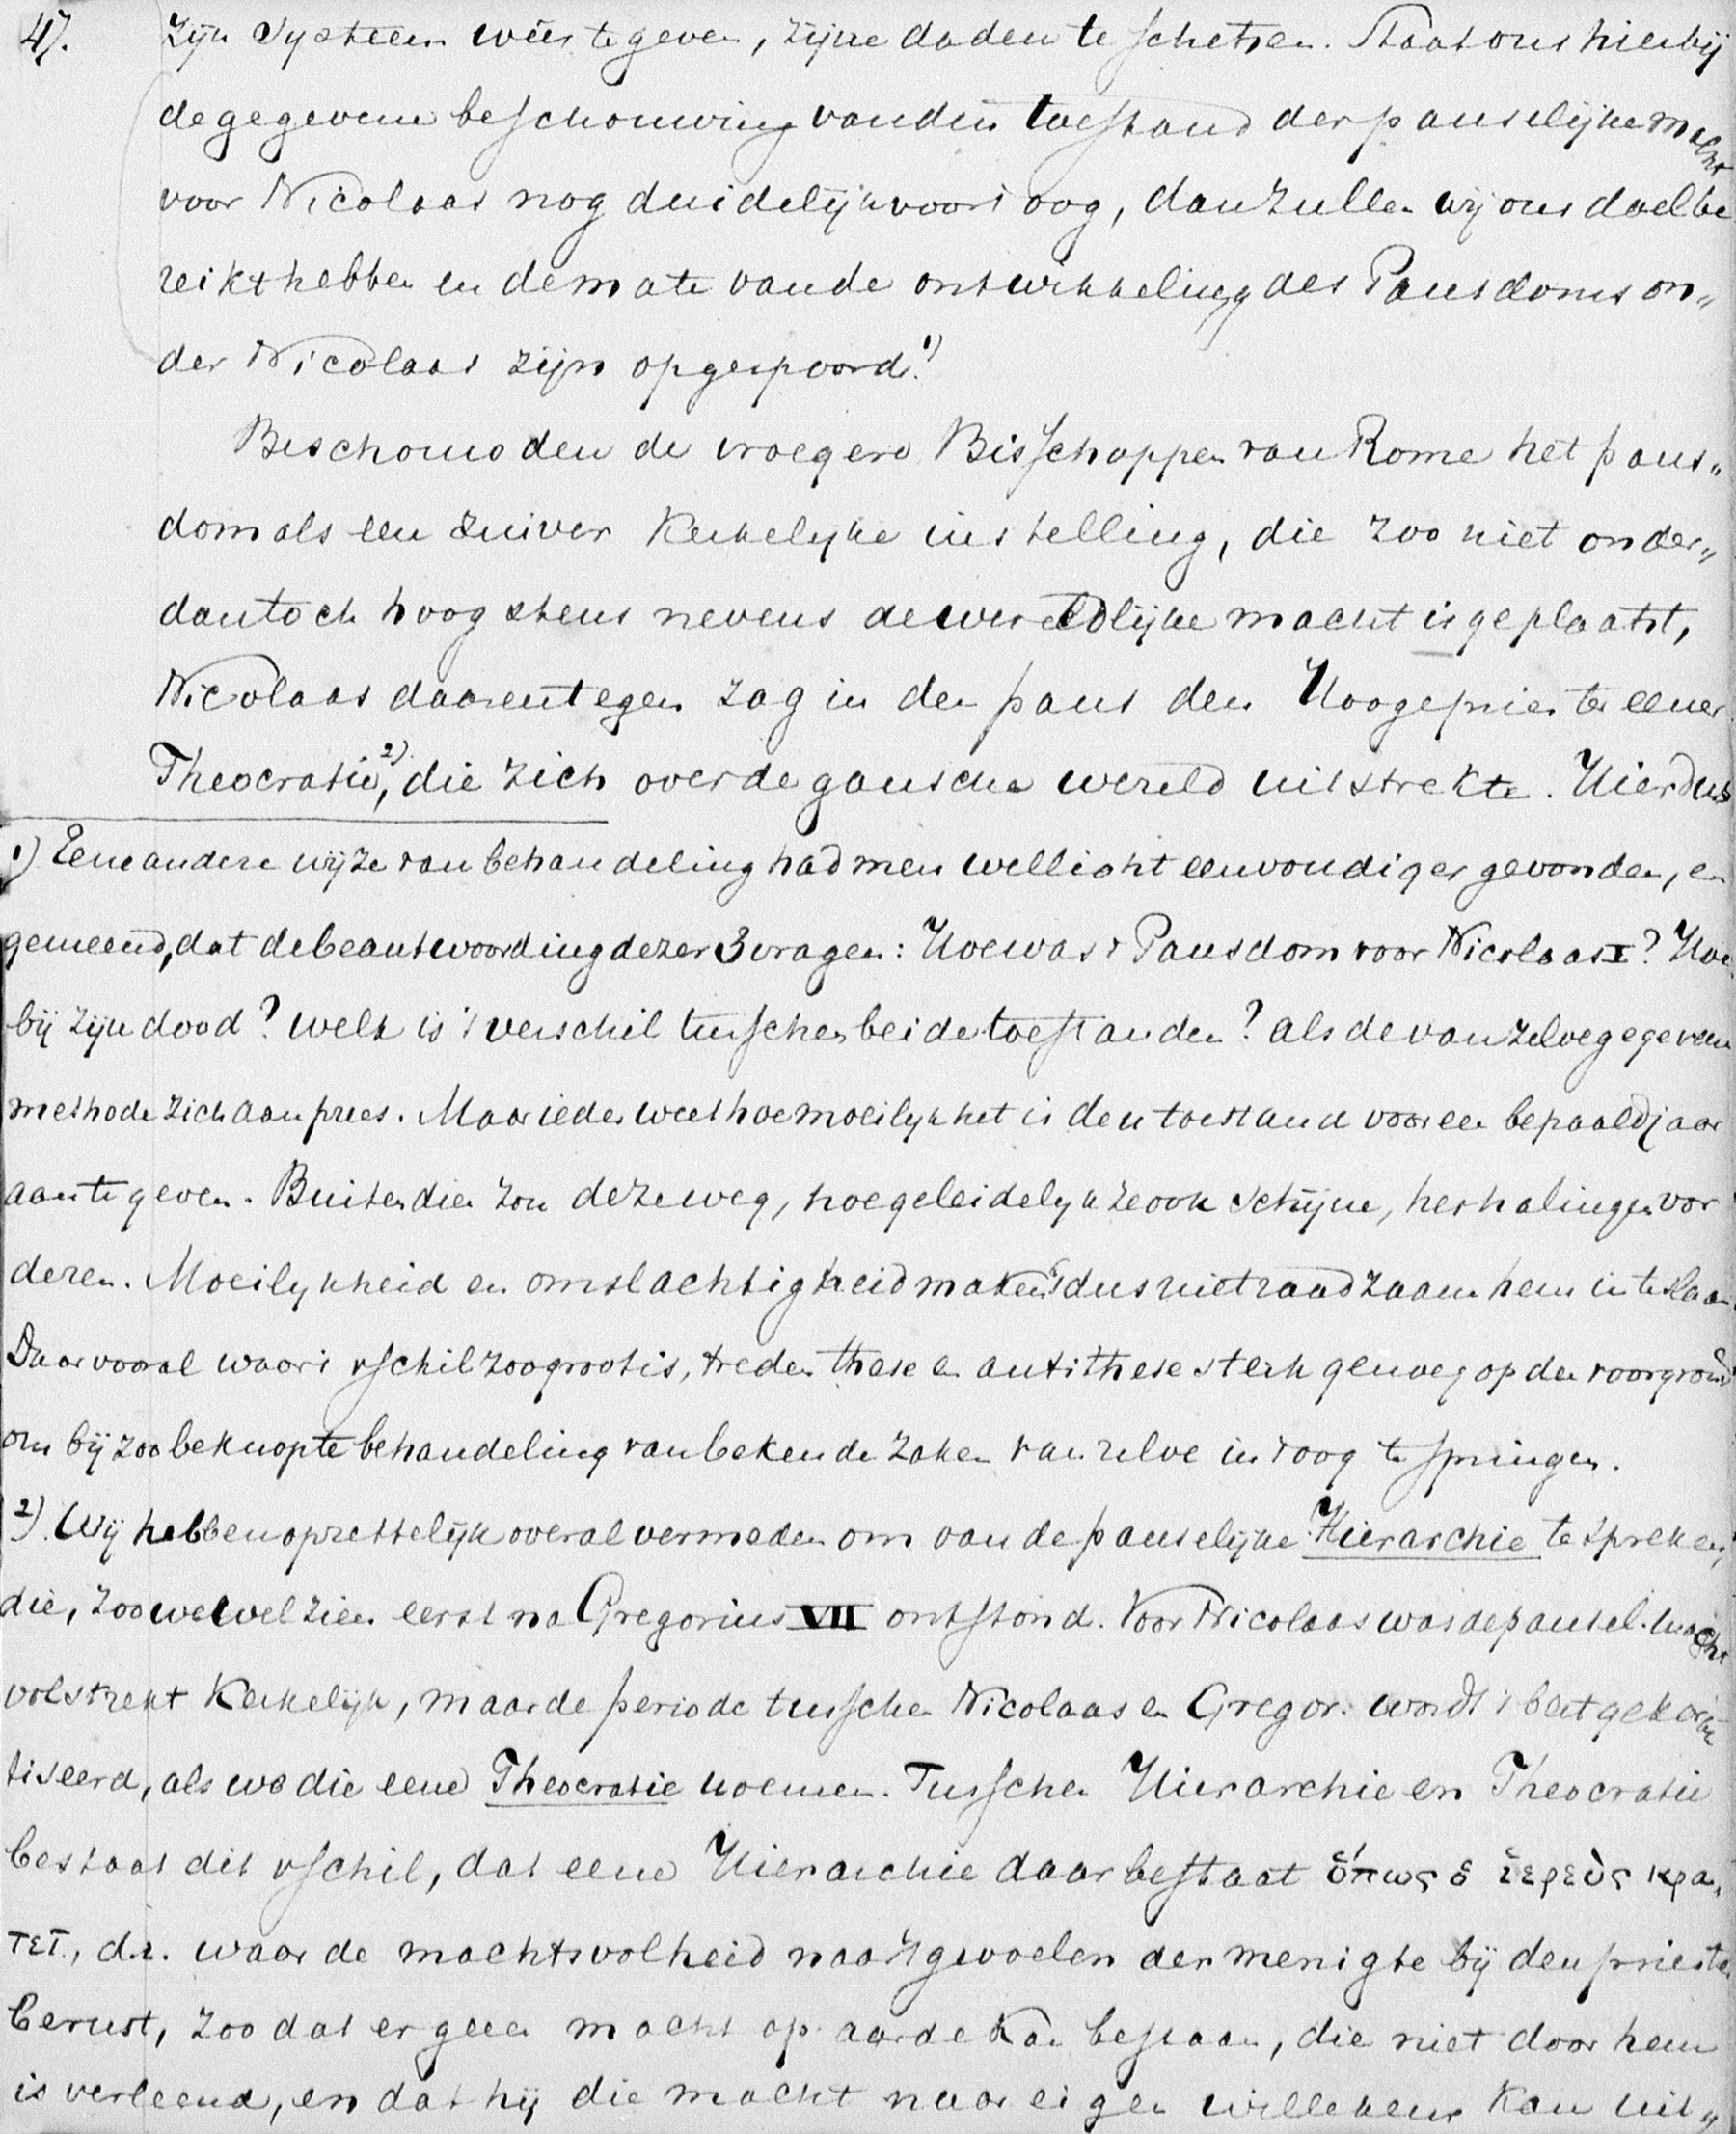 47. zijn systeem weêr te geven, zijne daden te schetsen. Staat ons hierbij
de gegevene beschouwing van den toestand der pauselijke macht
voor Nicolaas nog duidelijk voor 't oog, dan zullen wij ons doel be
reikt hebben en de mate van de ontwikkeling des Pausdoms on„
der Nicolaas zijn opgespoord.1)
Beschouwden de vroegere Bisschoppen van Rome het paus„
dom als een zuiver Kerkelijke instelling, die zoo niet onder„
dan toch hoogstens nevens de wereldlijke macht is geplaatst,
Nicolaas daarentegen zag in den paus den Hoogepriester eener
Theocratie,2) die zich over de gansche wereld uitstrekte. Hier dus
1) Eene andere wijze van behandeling had men wellicht eenvoudiger gevonden, en
gemeend, dat de beantwoording dezer 3 vragen: Hoe was 't Pausdom voor Nicolaas I? Hoe
bij zijn dood? welk is 't verschil tusschen beide toestanden? als de van zelve gegeven
methode zich aanprees. Maar ieder weet hoe moeilijk het is den toestand voor een bepaald jaar
aan te geven. Buitendien zou deze weg, hoe geleidelijk ze ook schijne, herhalingen vor
deren. Moeilijkheid en omslachtigheid maken 't dus niet raadzaam hem in te slaan
Daar vooral waar 't vschil zoo groot is, treden these en antithese sterk genoeg op den voorgrond
om bij zoo beknopte behandeling van bekende zaken van zelve in 't oog te springen.
2). Wij hebben opzettelijk overal vermeden om van de pauselijke Hierarchie te spreken,
die, zoo we wel zien eerst na Gregorius VII ontstond. Voor Nicolaas was de pausel. macht
volstrekt Kerkelijk, maar de periode tusschen Nicolaas en Gregor. wordt 't best gekarak
tiseerd, als we die eene Theocratie noemen. Tusschen Hierarchie en Theocratie
bestaat dit vschil, dat eene Hierarchie daar bestaat ὅπως ὁ ἱερεὺς κρα„
τεῖ, d.i. waar de machtsvolheid naar 't gevoelen der menigte bij den priester
berust, zoodat er geen macht op aarde Kan bestaan, die niet door hem
is verleend, en dat hij die macht naar eigen willekeur Kan uit„